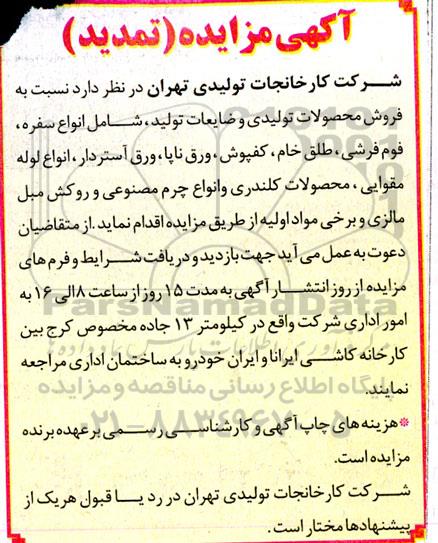 آگهی مزایده (تمدید)
شرکت کارخانجات تولیدی تهران در نظر دارد نسبت به
فروش محصولات تولیدی و ضایعات تولید، شامل انواع سفره،
فوم فرشی، طلق خام، کفپوش، ورق ناپا، ورق آستردار، انواع لوله
مقوایی، محصولات کلندری وانواع چرم مصنوعی و روکش مبل
مالزی و برخی مواد اولیه از طریق مزایده اقدام نماید .از متقاضیان
دعوت به عمل می آید جهت بازدید و دریافت شرایط و فرم های
مزایده از روز انتشار آگهی به مدت ۱۵ روز از ساعت ۸ الی ۱۶ به
ParsNamadData
امور اداری شرکت واقع در کیلومتر ۱۳ جاده مخصوص کرج بین
کارخانه کاشی ایرانا و ایران خودرو به ساختمان اداری مراجعه
پایگاه اطلاع رسانی مناقصه و مزایده
نمایند.
۰۲۱-۸۸۳۴۹۶۷۰-۵
*هزینه های چاپ آگهی و کارشناسی رسمی بر عهده برنده
مزایده است.
شرکت کارخانجات تولیدی تهران در رد یا قبول هریک از
پیشنهادها مختار است.